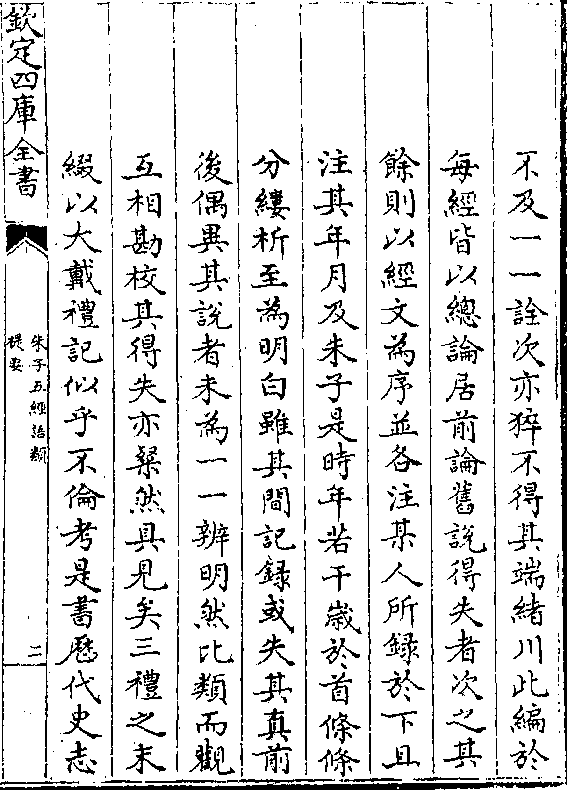 不及一一詮次亦猝不得其端緒川此編於
每經皆以總論居前論舊說得失者次之其
餘則以經文為序並各注某人所錄於下且
注其年月及朱子是時年若干歲於首條條
分縷析至為明白雖其間記錄或失其真前
後偶異其說者未為一一辨明然比類而觀
互相勘校其得失亦粲然具見矣三禮之末
綴以大戴禮記似乎不倫考是書歷代史志
欽定四庫全書
朱子五經語類
提要
二